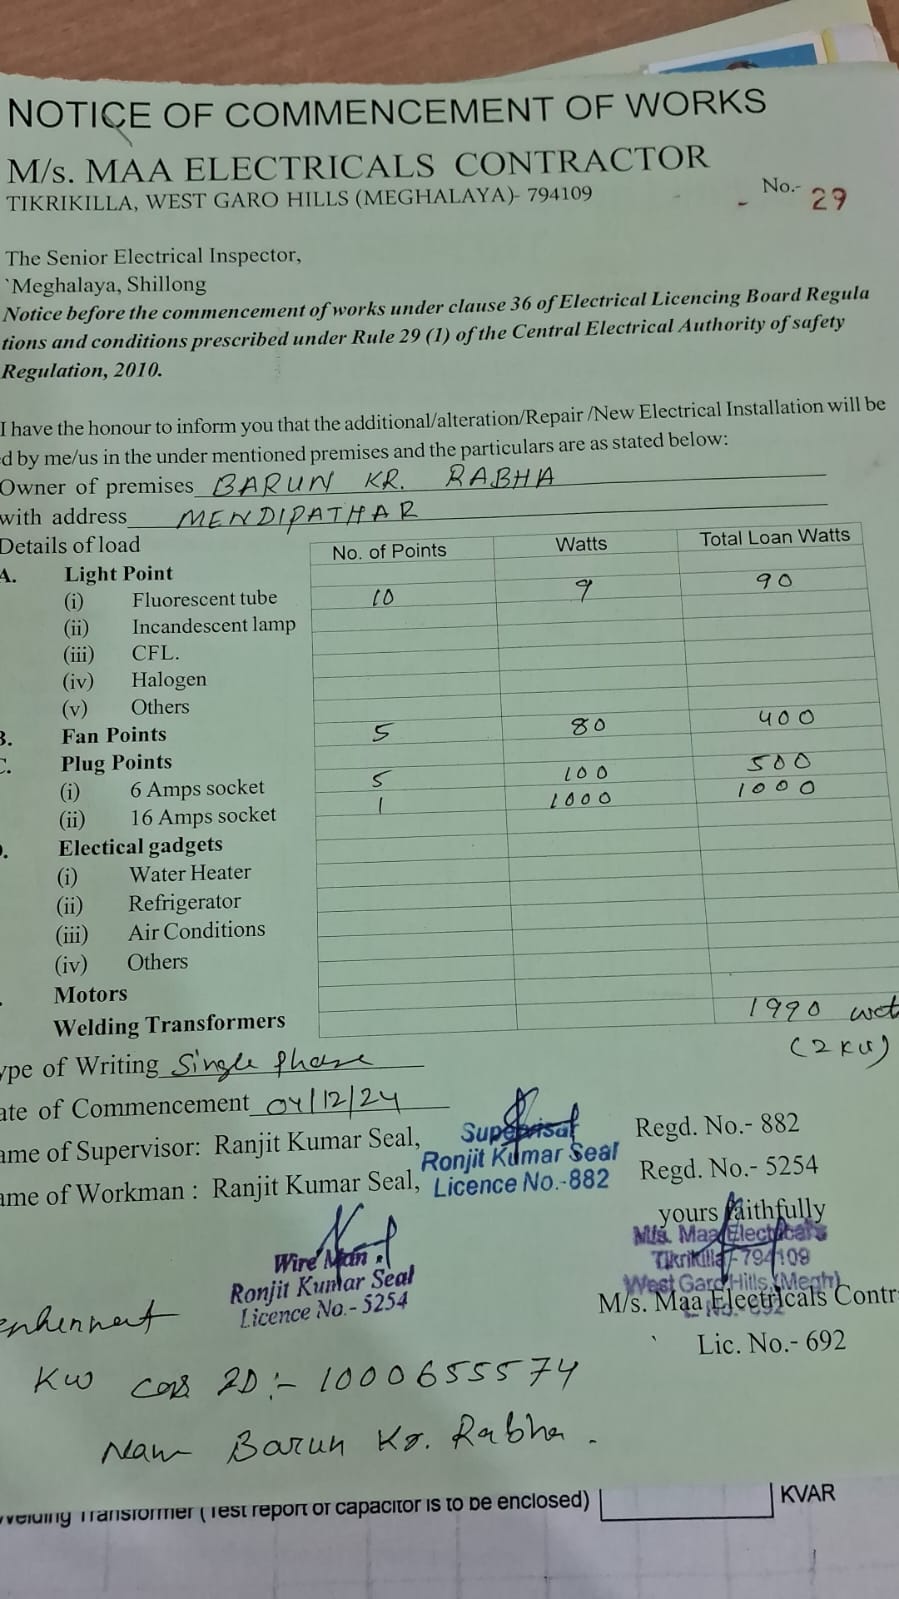 NOTICE OF COMMENCEMENT OF WORKS
M/s. MAA ELECTRICALS CONTRACTOR
TIKRIKILLA, WEST GARO HILLS (MEGHALAYA)- 794109
No.- 29
The Senior Electrical Inspector,
`Meghalaya, Shillong
Notice before the commencement of works under clause 36 of Electrical Licencing Board Regula
tions and conditions prescribed under Rule 29 (1) of the Central Electrical Authority of safety
Regulation, 2010.
I have the honour to inform you that the additional/alteration/Repair /New Electrical Installation will be
d by me/us in the under mentioned premises and the particulars are as stated below:
Owner of premises BARUN KR. RABHA
with address MENDIPATHAR
Details of load No. of Points Watts Total Loan Watts
A. Light Point
(i) Fluorescent tube 10 9 90
(ii) Incandescent lamp
(iii) CFL.
(iv) Halogen
(v) Others
B. Fan Points 5 80 400
C. Plug Points
(i) 6 Amps socket 5 100 500
(ii) 16 Amps socket 1 1000 1000
Electical gadgets
(i) Water Heater
(ii) Refrigerator
(iii) Air Conditions
(iv) Others
Motors
Welding Transformers 1990
(2 KW)
ype of Writing Single phase
ate of Commencement 04/12/24
ame of Supervisor: Ranjit Kumar Seal, Regd. No.- 882
Ronjit Kumar Seal
Licence No.-882
ame of Workman : Ranjit Kumar Seal, Regd. No.- 5254
yours faithfully
M/s. Maa Electricals
Tikrikilla-794109
West Garo Hills, (Megh)
Wire Man
Ronjit Kumar Seal
Licence No.- 5254
M/s. Maa Electricals Contr
Lic. No.- 692
KW ID:- 1000655574
Barun Kr. Rabha.
Welding Transformer (Test report of capacitor is to be enclosed) KVAR